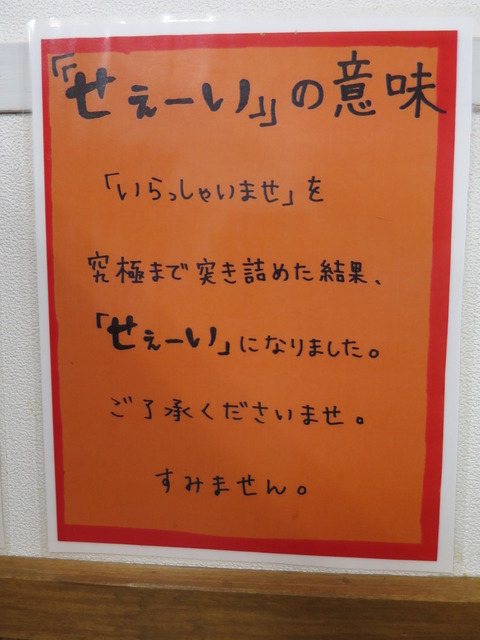 「「せぇーい」」の意味
「いらっしゃいませ」を
究極まで突き詰めた結果、
「せぇーい」になりました。
ご了承くださいませ。
すみません。